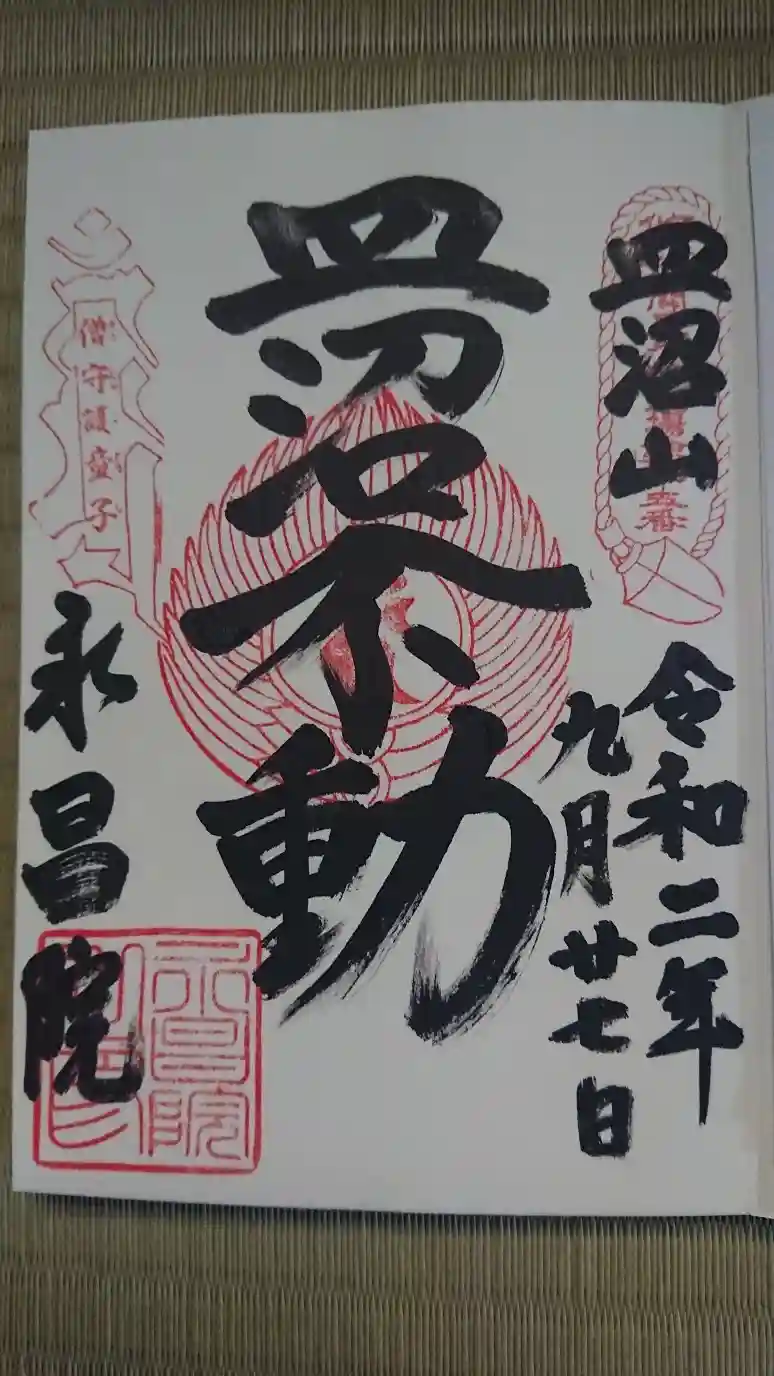 皿沼山
令和二年
九月廿七日
皿沼不動
僧守護童子
永昌院
永昌院